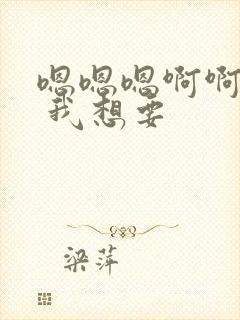 嗯嗯嗯啊啊
我想要
梁萍